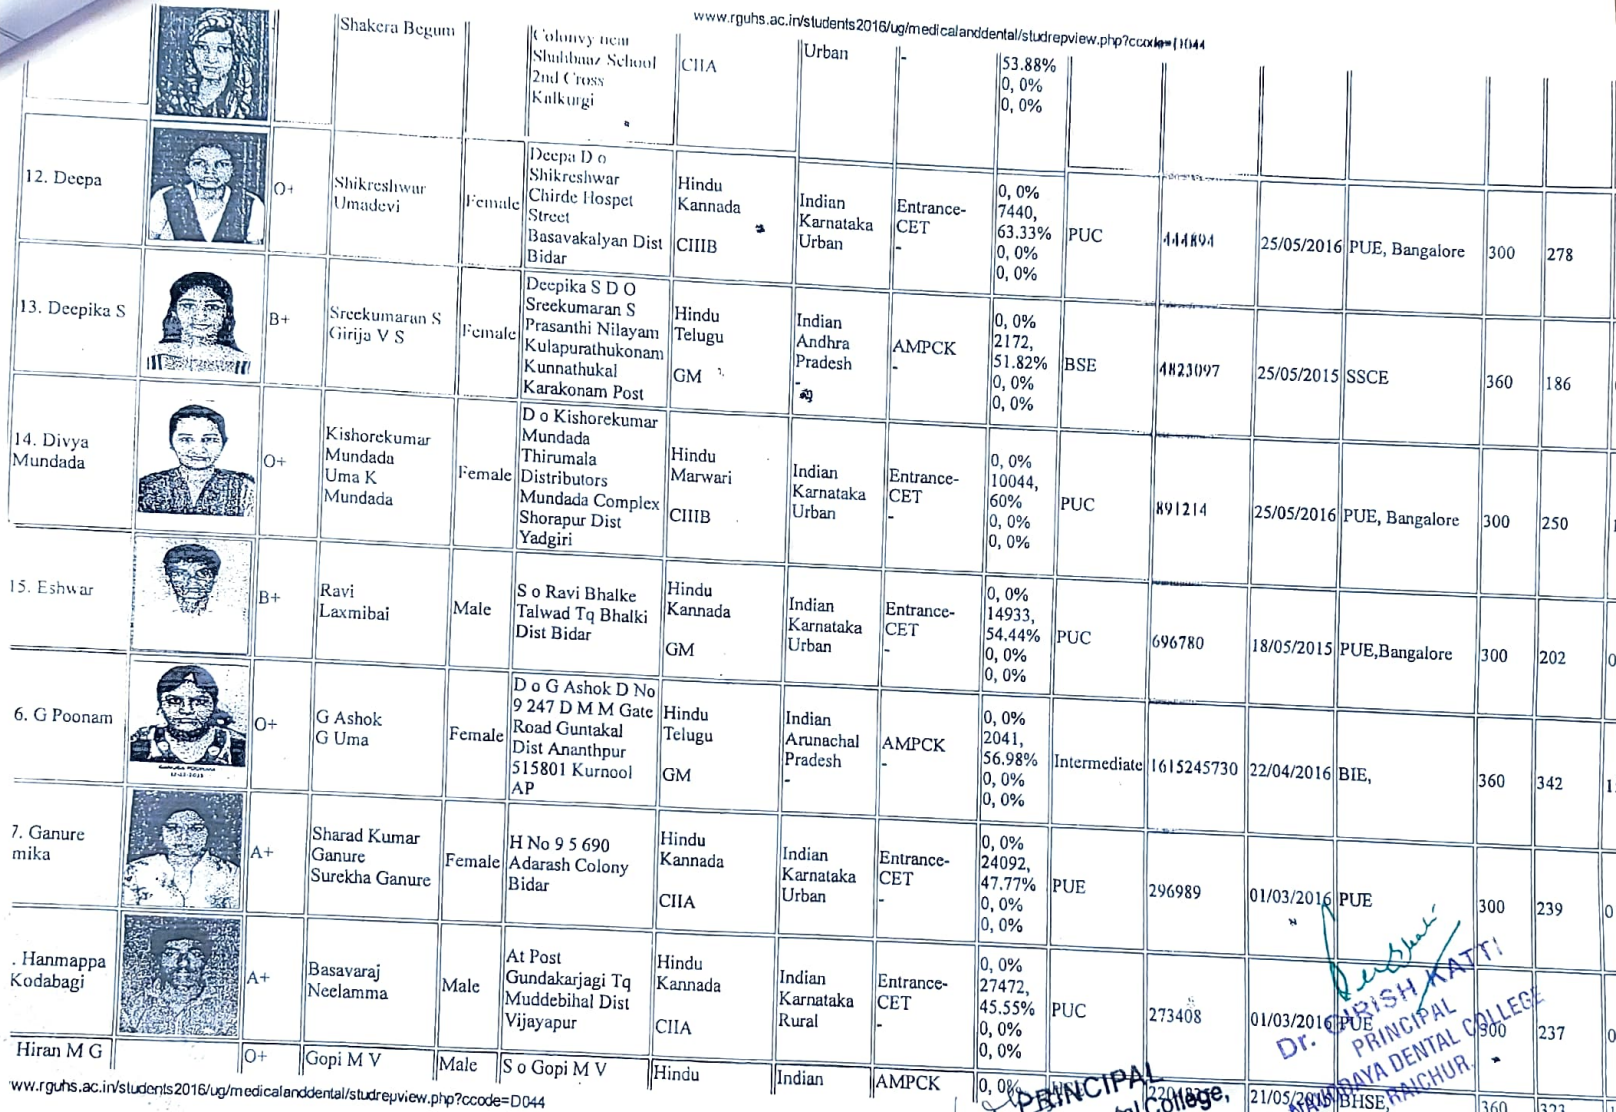 www.rguhs.ac.in/students2016/ug/medicalanddental/studrepview.php?ccode=D044
Shakera Begum
Colonvy near
Shahbaaz School
2nd Cross
Kalkurgi
CIIA
Urban
-
53.88%
0, 0%
0, 0%
12. Deepa
O+
Shikreshwar
Umadevi
Female
Deepa D o
Shikreshwar
Chirde Hospet
Street
Basavakalyan Dist
Bidar
Hindu
Kannada
CIIIB
Indian
Karnataka
Urban
Entrance-
CET
-
0, 0%
7440,
63.33%
0, 0%
0, 0%
PUC
444894
25/05/2016
PUE, Bangalore
300
278
13. Deepika S
B+
Sreekumaran S
Girija V S
Female
Deepika S D O
Sreekumaran S
Prasanthi Nilayam
Kulapurathukonam
Kunnathukal
Karakonam Post
Hindu
Telugu
GM
Indian
Andhra
Pradesh
-
AMPCK
-
0, 0%
2172,
51.82%
0, 0%
0, 0%
BSE
4823097
25/05/2015
SSCE
360
186
14. Divya
Mundada
O+
Kishorekumar
Mundada
Uma K
Mundada
Female
D o Kishorekumar
Mundada
Thirumala
Distributors
Mundada Complex
Shorapur Dist
Yadgiri
Hindu
Marwari
CIIIB
Indian
Karnataka
Urban
Entrance-
CET
-
0, 0%
10044,
60%
0, 0%
0, 0%
PUC
891214
25/05/2016
PUE, Bangalore
300
250
15. Eshwar
B+
Ravi
Laxmibai
Male
S o Ravi Bhalke
Talwad Tq Bhalki
Dist Bidar
Hindu
Kannada
GM
Indian
Karnataka
Urban
Entrance-
CET
-
0, 0%
14933,
54.44%
0, 0%
0, 0%
PUC
696780
18/05/2015
PUE,Bangalore
300
202
0
6. G Poonam
O+
G Ashok
G Uma
Female
D o G Ashok D No
9 247 D M M Gate
Road Guntakal
Dist Ananthpur
515801 Kurnool
AP
Hindu
Telugu
GM
Indian
Arunachal
Pradesh
-
AMPCK
-
0, 0%
2041,
56.98%
0, 0%
0, 0%
Intermediate
1615245730
22/04/2016
BIE,
360
342
7. Ganure
mika
A+
Sharad Kumar
Ganure
Surekha Ganure
Female
H No 9 5 690
Adarash Colony
Bidar
Hindu
Kannada
CIIA
Indian
Karnataka
Urban
Entrance-
CET
-
0, 0%
24092,
47.77%
0, 0%
0, 0%
PUE
296989
01/03/2016
PUE
300
239
0
. Hanmappa
Kodabagi
A+
Basavaraj
Neelamma
Male
At Post
Gundakarjagi Tq
Muddebihal Dist
Vijayapur
Hindu
Kannada
CIIA
Indian
Karnataka
Rural
Entrance-
CET
-
0, 0%
27472,
45.55%
0, 0%
0, 0%
PUC
273408
01/03/2016
PUE
300
237
0
Dr. GIRISH KATTI
PRINCIPAL
NAVODAYA DENTAL COLLEGE
RAICHUR.
Hiran M G
O+
Gopi M V
Male
S o Gopi M V
Hindu
Indian
AMPCK
0, 0%
BHSE,
360
PRINCIPAL
College,
www.rguhs.ac.in/students2016/ug/medicalanddental/studrepview.php?ccode=D044